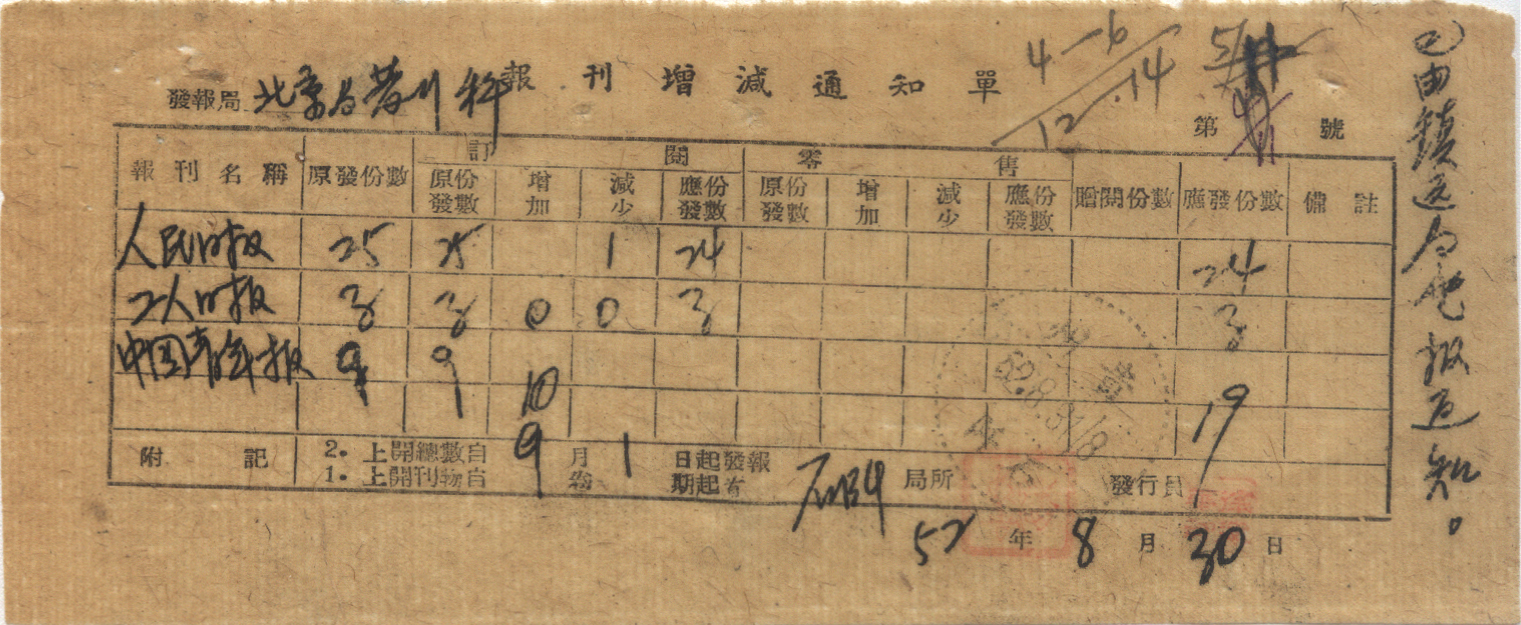 報刊增減通知單
4-6
12.14
發報局 北京 科
第 號
訂閱 零售
報刊名稱 原發份數 原發份數 增加 減少 應發份數 原發份數 增加 減少 應發份數 贈閱份數 應發份數 備註
人民日报 25 25 1 24 24
工人日报 3 3 0 0 3 3
中国青年报 9 9 10 19
附記
2. 上開總數自 9 月 1 日起發報
1. 上開刊物自 卷 期起有
局所 發行員
52 年 8 月 30 日
已由镇远局电报通知。
52.8.31/8